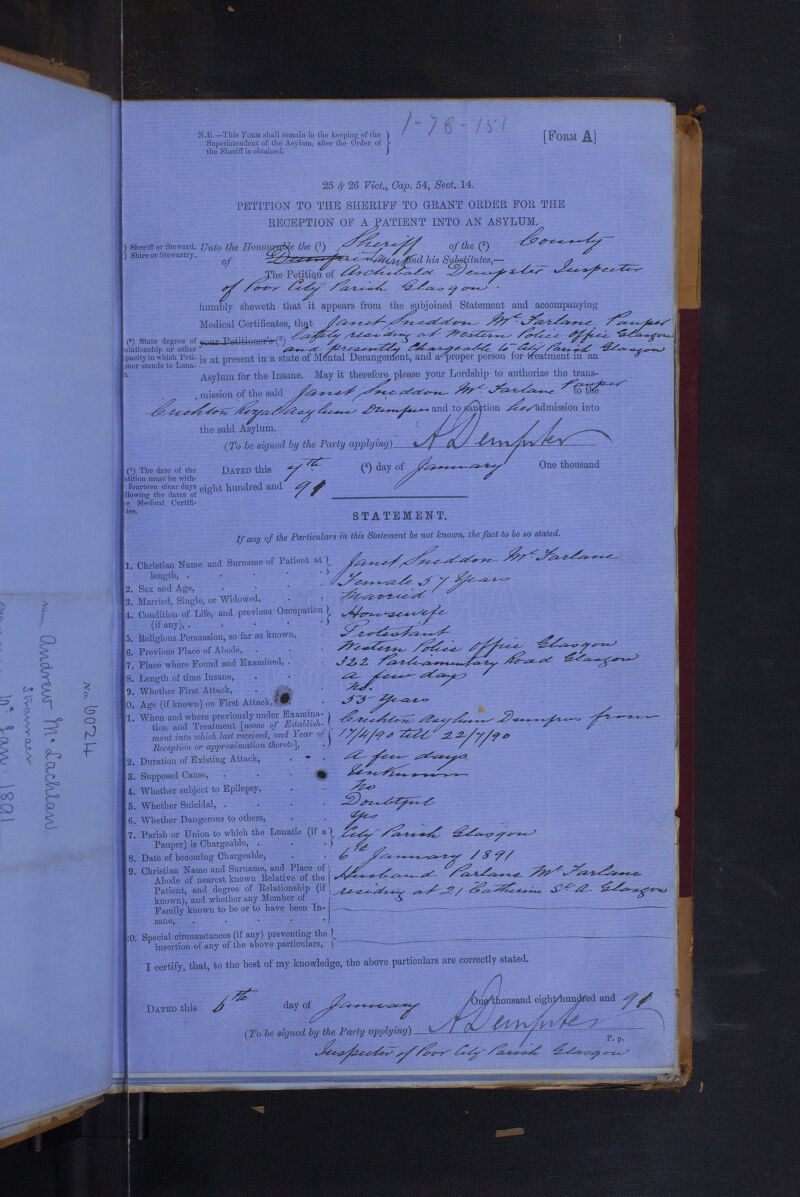 1-78-151
N.B.—This Form shall remain in the keeping of the
Superintendent of the Asylum, after the Order of
the Sheriff is obtained.
[Form A]
25 & 26 Vict., Cap. 54, Sect. 14.
PETITION TO THE SHERIFF TO GRANT ORDER FOR THE
RECEPTION OF A PATIENT INTO AN ASYLUM.
) Sheriff or Steward.
) Shire or Stewartry.
Unto the Honourable the (1) Sheriff of the (2) County
of and his Substitutes,—
The Petition of Archibald Dempster Inspector
of Poor City Parish Glasgow.
humbly sheweth that it appears from the subjoined Statement and accompanying
Medical Certificates, that Janet Sneddon Mc Farlane Pauper
(3) State degree of
elationship or other
pacity in which Peti-
oner stands to Luna-
your Petitioner's (3) lately residing at Western Police Office Glasgow
and presently Chargeable to City Parish Glasgow
is at present in a state of Mental Derangement, and a proper person for treatment in an
Asylum for the Insane. May it therefore please your Lordship to authorize the trans-
mission of the said Janet Sneddon Mc Farlane Pauper to the
Crichton Royal Asylum Dumfries and to sanction her admission into
the said Asylum.
(To be signed by the Party applying) A Dempster
(4) The date of the
etition must be with-
fourteen clear days
llowing the dates of
e Medical Certifi-
tes.
Dated this 7th (4) day of January One thousand
eight hundred and 91
STATEMENT.
If any of the Particulars in this Statement be not known, the fact to be so stated.
1. Christian Name and Surname of Patient at
length, . Janet Sneddon Mc Farlane
2. Sex and Age, Female 57 Years
3. Married, Single, or Widowed, Married
4. Condition of Life, and previous Occupation
(if any), . Housewife
5. Religious Persuasion, so far as known, Protestant
6. Previous Place of Abode, Western Police Office Glasgow
7. Place where Found and Examined, . 322 Parliamentary Road Glasgow
8. Length of time Insane, a few days
9. Whether First Attack, No.
0. Age (if known) on First Attack, 55 Years
1. When and where previously under Examina-
tion and Treatment [name of Establish-
ment into which last received, and Year of
Reception or approximation thereto],
Crichton Asylum Dumfries from
17/4/90 till 22/7/90
2. Duration of Existing Attack, A few days
3. Supposed Cause, Unknown
4. Whether subject to Epilepsy, No
5. Whether Suicidal, . Doubtful
6. Whether Dangerous to others, Yes
7. Parish or Union to which the Lunatic (if a
Pauper) is Chargeable, . City Parish Glasgow
8. Date of becoming Chargeable, 6th January 1891
9. Christian Name and Surname, and Place of
Abode of nearest known Relative of the
Patient, and degree of Relationship (if
known), and whether any Member of
Family known to be or to have been In-
sane,
Husband Parlane Mc Farlane
residing at 21 Catherine St. A. Glasgow
20. Special circumstances (if any) preventing the
insertion of any of the above particulars,
I certify, that, to the best of my knowledge, the above particulars are correctly stated.
Dated this 6th day of January One thousand eight hundred and 91
(To be signed by the Party applying) A Dempster
P. p.
Inspector of Poor City Parish Glasgow
No. 6024
Andrew McLachlan
Stranraer
Jan. 1891